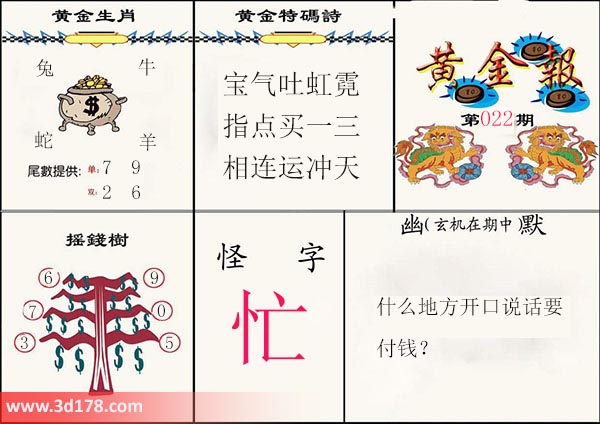 黃金生肖
兔 牛
$
蛇 羊
尾數提供: 单: 7 9
双: 2 6
黃金特碼詩
宝气吐虹霓
指点买一三
相连运冲天
黃金報
第022期
摇錢樹
6 9
7 0
3 5
怪 字
忙
幽(玄机在期中)默
什么地方开口说话要
付钱？
www.3d178.com